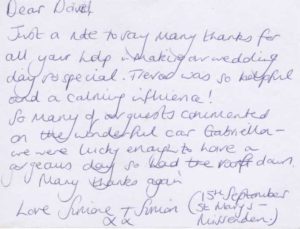 Dear David
Just a note to say many thanks for
all your help in making our wedding
day so special. Trevor was so helpful
and a calming influence!
So many of our guests commented
on the wonderful car Gabriella -
we were lucky enough to have a
gorgeous day so had the roof down.
Many thanks again
Love Simone + Simon (15th September
xx St Mary's -
Missenden.)